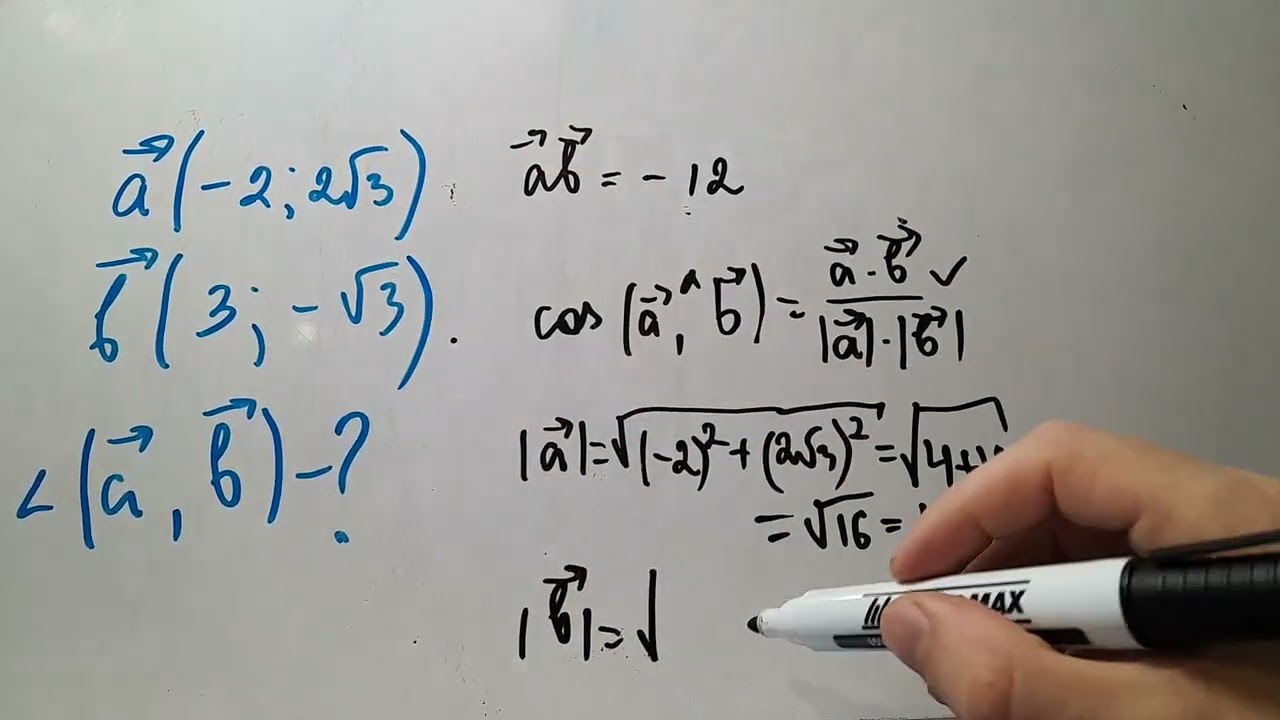 a⃗ (-2; 2√3)
b⃗ (3; -√3).
∠(a⃗, b⃗) - ?
a⃗b⃗ = -12
cos (a⃗,^ b⃗) = a⃗ · b⃗ ✓ / |a⃗| · |b⃗|
|a⃗| = √(-2)² + (2√3)² = √4+
= √16 =
|b⃗| = √
MAX